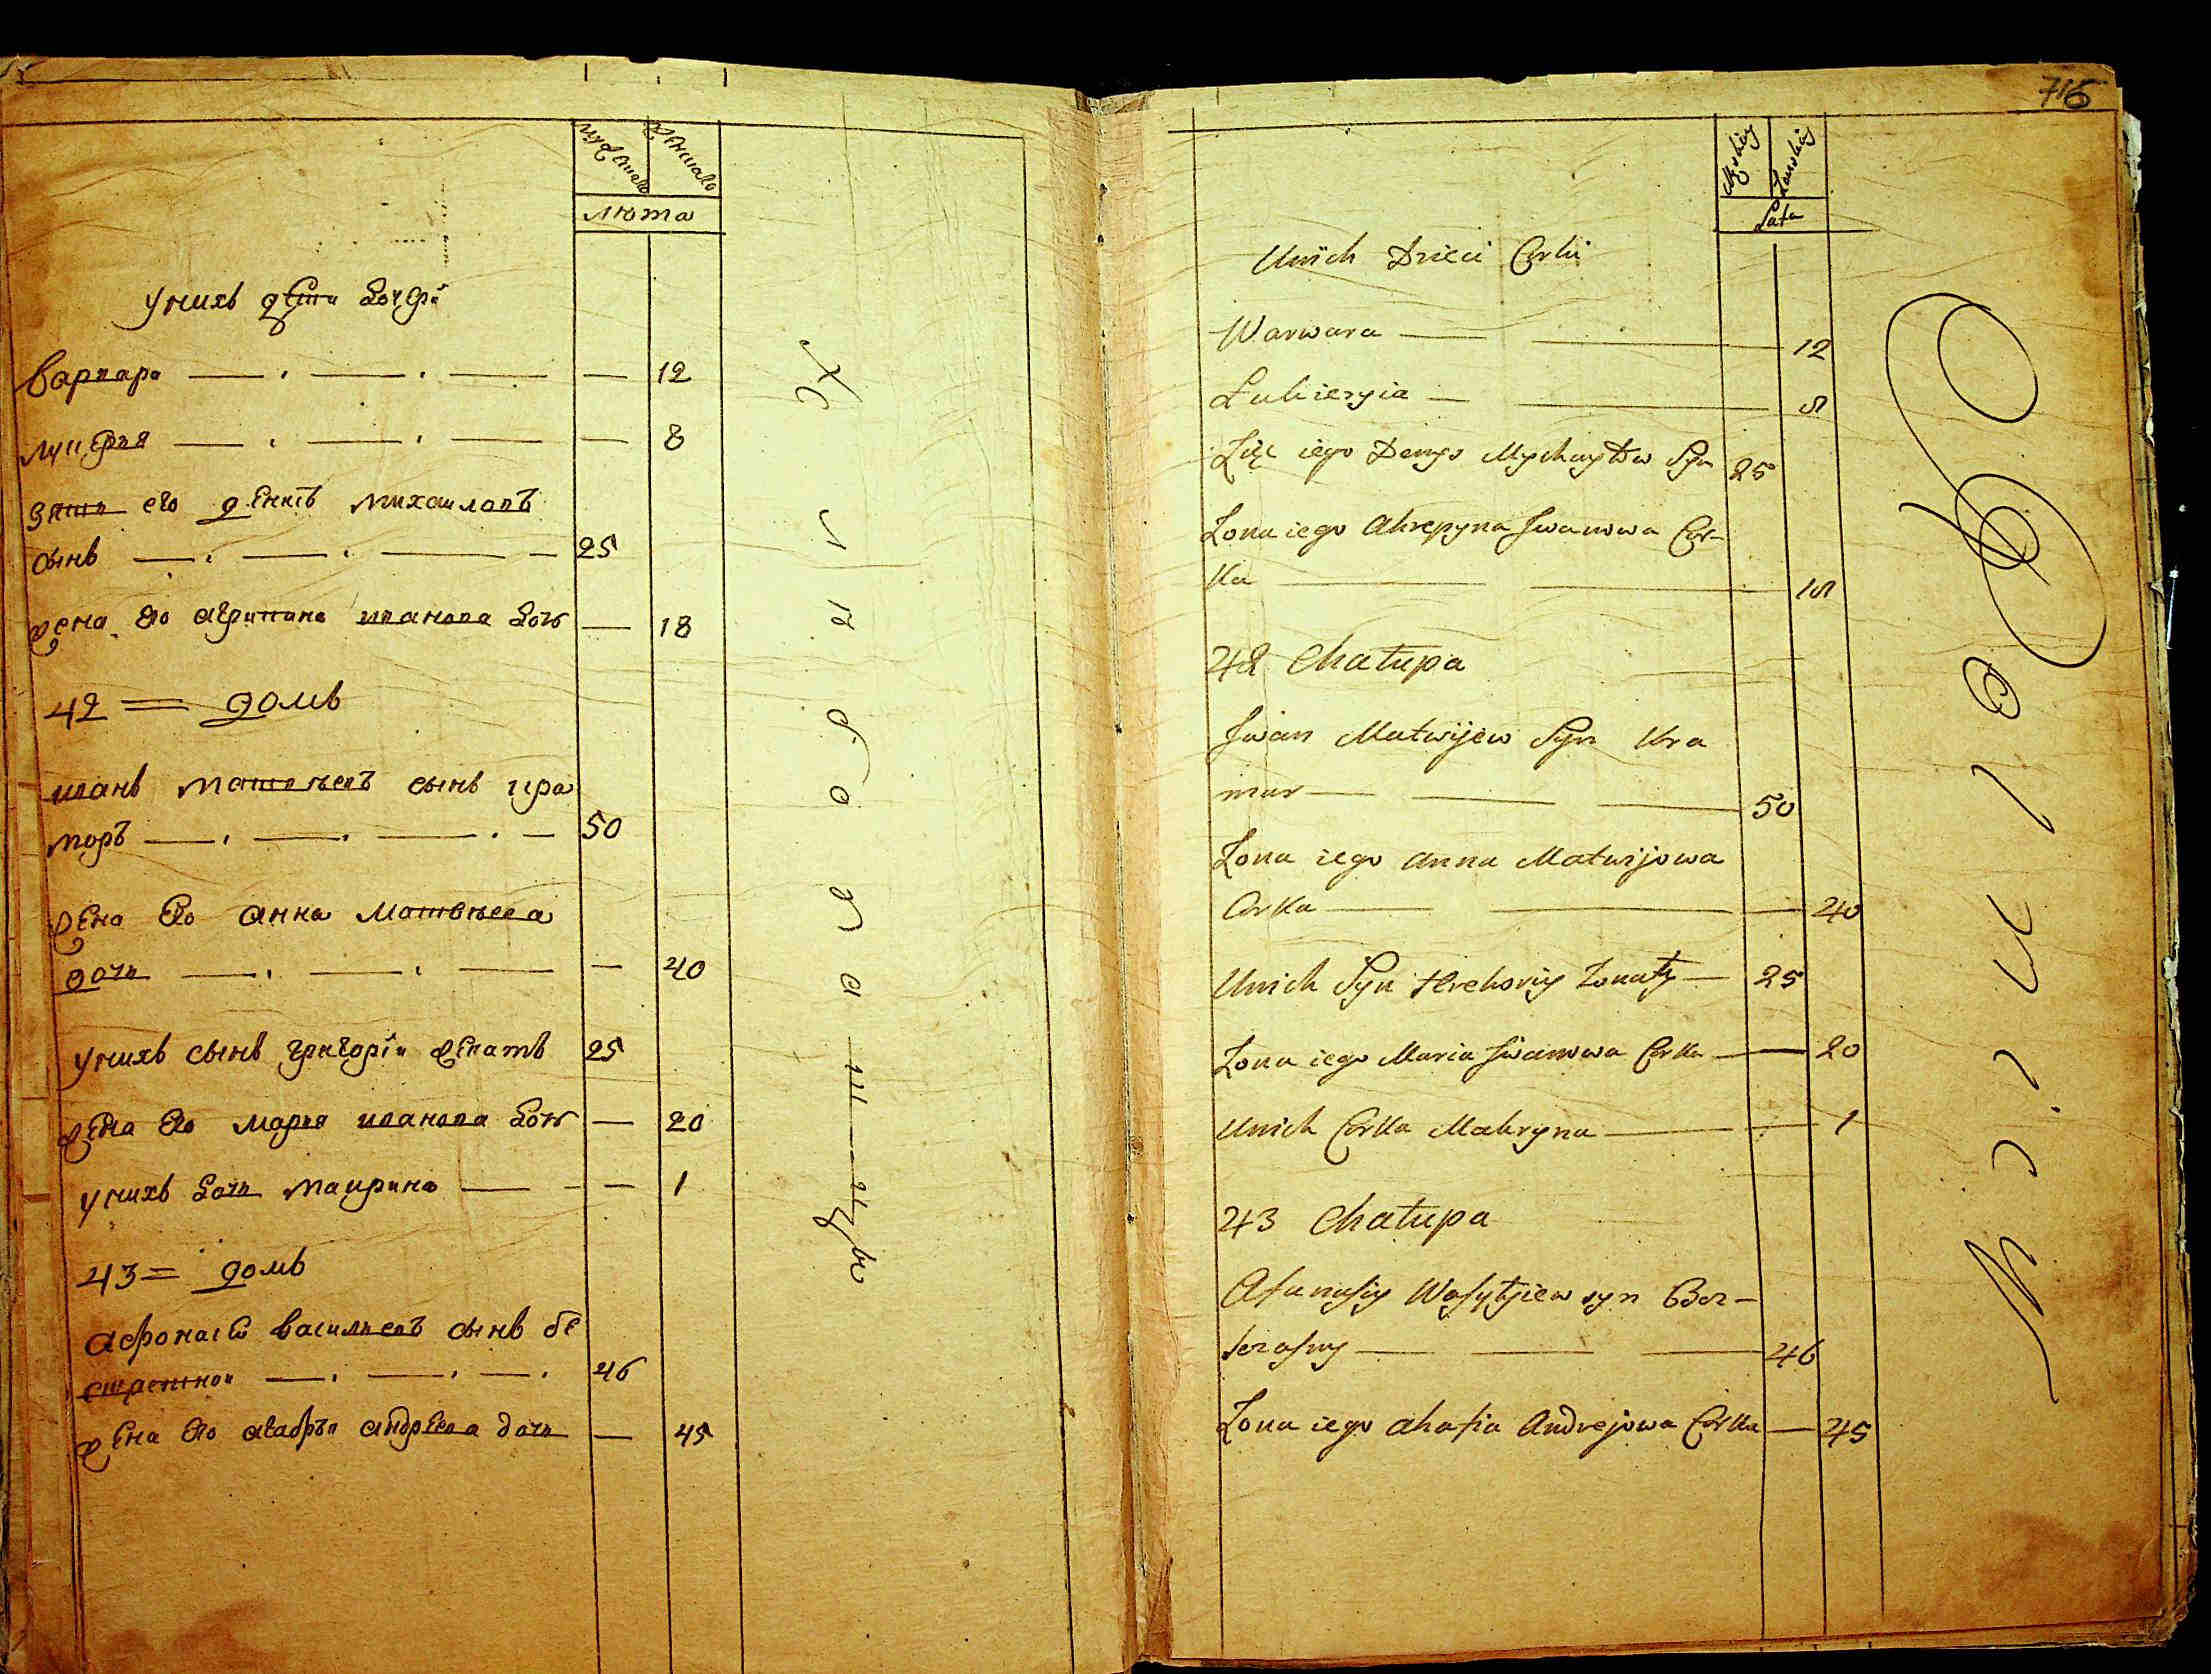 мужеска женска
лѣта
у нихъ дети дочери
варвара — . — . — — 12
лукеря — . — . — — 8
зять его денисъ михаиловъ
сынъ — . — . — — 25
жена его агрипина иванова дочь — 18
42 = домъ
иванъ матвѣевъ сынъ кра
моръ — . — . — . — 50
жена его анна матвѣева
дочь — . — . — — 40
у нихъ сынъ григорїи женатъ 25
жена его марья иванова дочь — 20
у нихъ дочь макрина — - — 1
43 = домъ
афонасеи васильевъ сынъ бе
страшнои — . — . — . 46
жена его агафья андреева дочь — 45
716
Męskiey Żenskiey
Lata
Unich Dzieci Corki
Warwara — — 12
Lukieryia — — 8
Zięć iego Denys Mychayłow Syn 25
Żona iego Ahrepyna Jwanowa Cor-
ka — — 18
42 Chałupa
Jwan Matwijew Syn Kra
mar — — — 50
Żona iego Anna Matwijowa
Corka — — — 40
Unich Syn Hrehoriy Żonaty — 25
Żona iego Maria Jwanowa Corka — 20
Unich Corka Makryna — 1
43 Chałupa
Afanasiy Wasylyiew syn Bez-
straszny — — — 46
Żona iego Ahafia Andrejowa Corka — 45